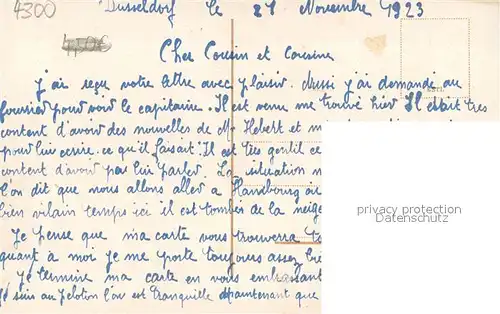 4300
Dusseldorf le 21 Novembre 1923
Cher Cousin et cousine
J'ai reçu votre lettre avec plaisir. Aussi j'ai demandé au
fourrier pour voir le capitaine. Il est venu me trouvé hier Il était tres
content d'avoir des nouvelles de Mr Hebert et m
pour lui ecrire. ce qu'il faisait. Il est très gentil ce
content d'avoir pas lui parler. La situation n
l'on dit que nous allons aller a Hambourg ou
bien vilain temps ici il est tomber de la neige
Je pense que ma carte vous trouverra
quant à moi je me porte toujours assez
Je termine ma carte en vous embrassant
Je suis au peloton l'on est tranquille maintenant que
privacy protection
Datenschutz